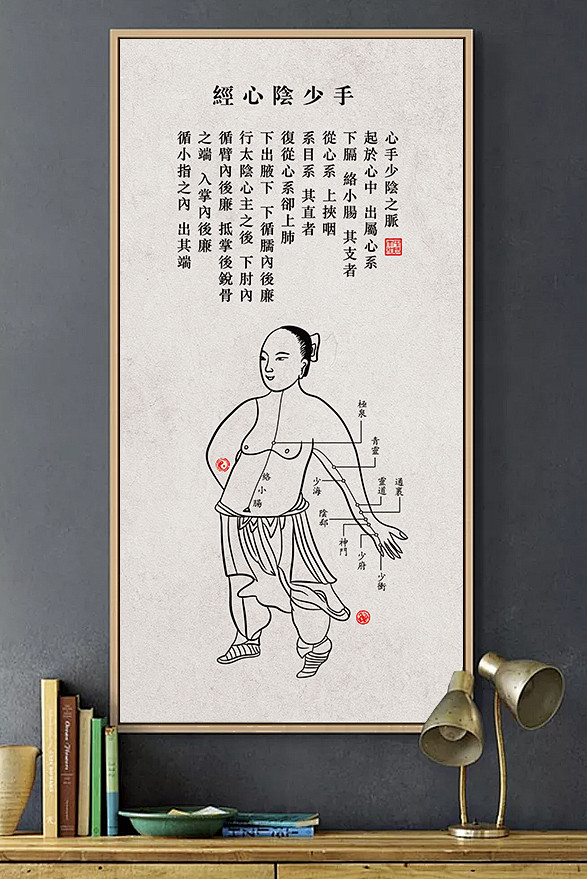 手少陰心經
心手少陰之脈
起於心中 出屬心系
下膈 絡小腸 其支者
從心系 上挾咽
系目系 其直者
復從心系卻上肺
下出腋下 下循臑內後廉
行太陰心主之後 下肘內
循臂內後廉 抵掌後銳骨
之端 入掌內後廉
循小指之內 出其端
極泉
青靈
通裏
靈道
少海
陰郄
神門
少府
少衝
絡小腸
Ocean Flowers